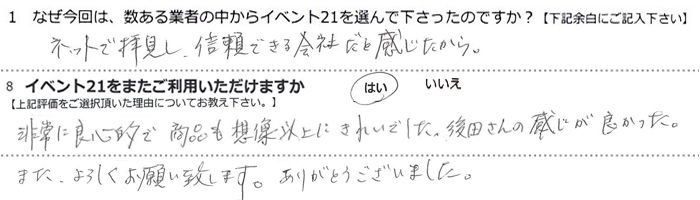 1 なぜ今回は、数ある業者の中からイベント21を選んで下さったのですか？【下記余白にご記入下さい】
ネットで拝見し、信頼できる会社だと感じたから。
8 イベント21をまたご利用いただけますか　はい　いいえ
【上記評価をご選択頂いた理由についてお教え下さい。】
非常に良心的で商品も想像以上にきれいでした。後田さんの感じが良かった。
また、よろしくお願い致します。ありがとうございました。